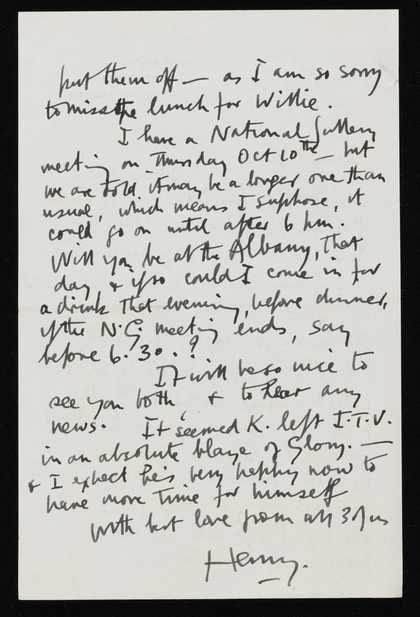 put them off — as I am so sorry
to miss the lunch for Willie.
I have a National Gallery
meeting on Thursday Oct 10th — but
we are told it may be a longer one than
usual, which means I suppose, it
could go on until after 6 p.m.
Will you be at the Albany, that
day & if so could I come in for
a drink that evening, before dinner,
if the N.G. meeting ends, say
before 6.30.?
It will be so nice to
see you both, & to hear any
news. It seemed K. left I.T.V.
in an absolute blaze of Glory. —
& I expect he's very happy now to
have more time for himself
with best love from all 3 of us
Henry.